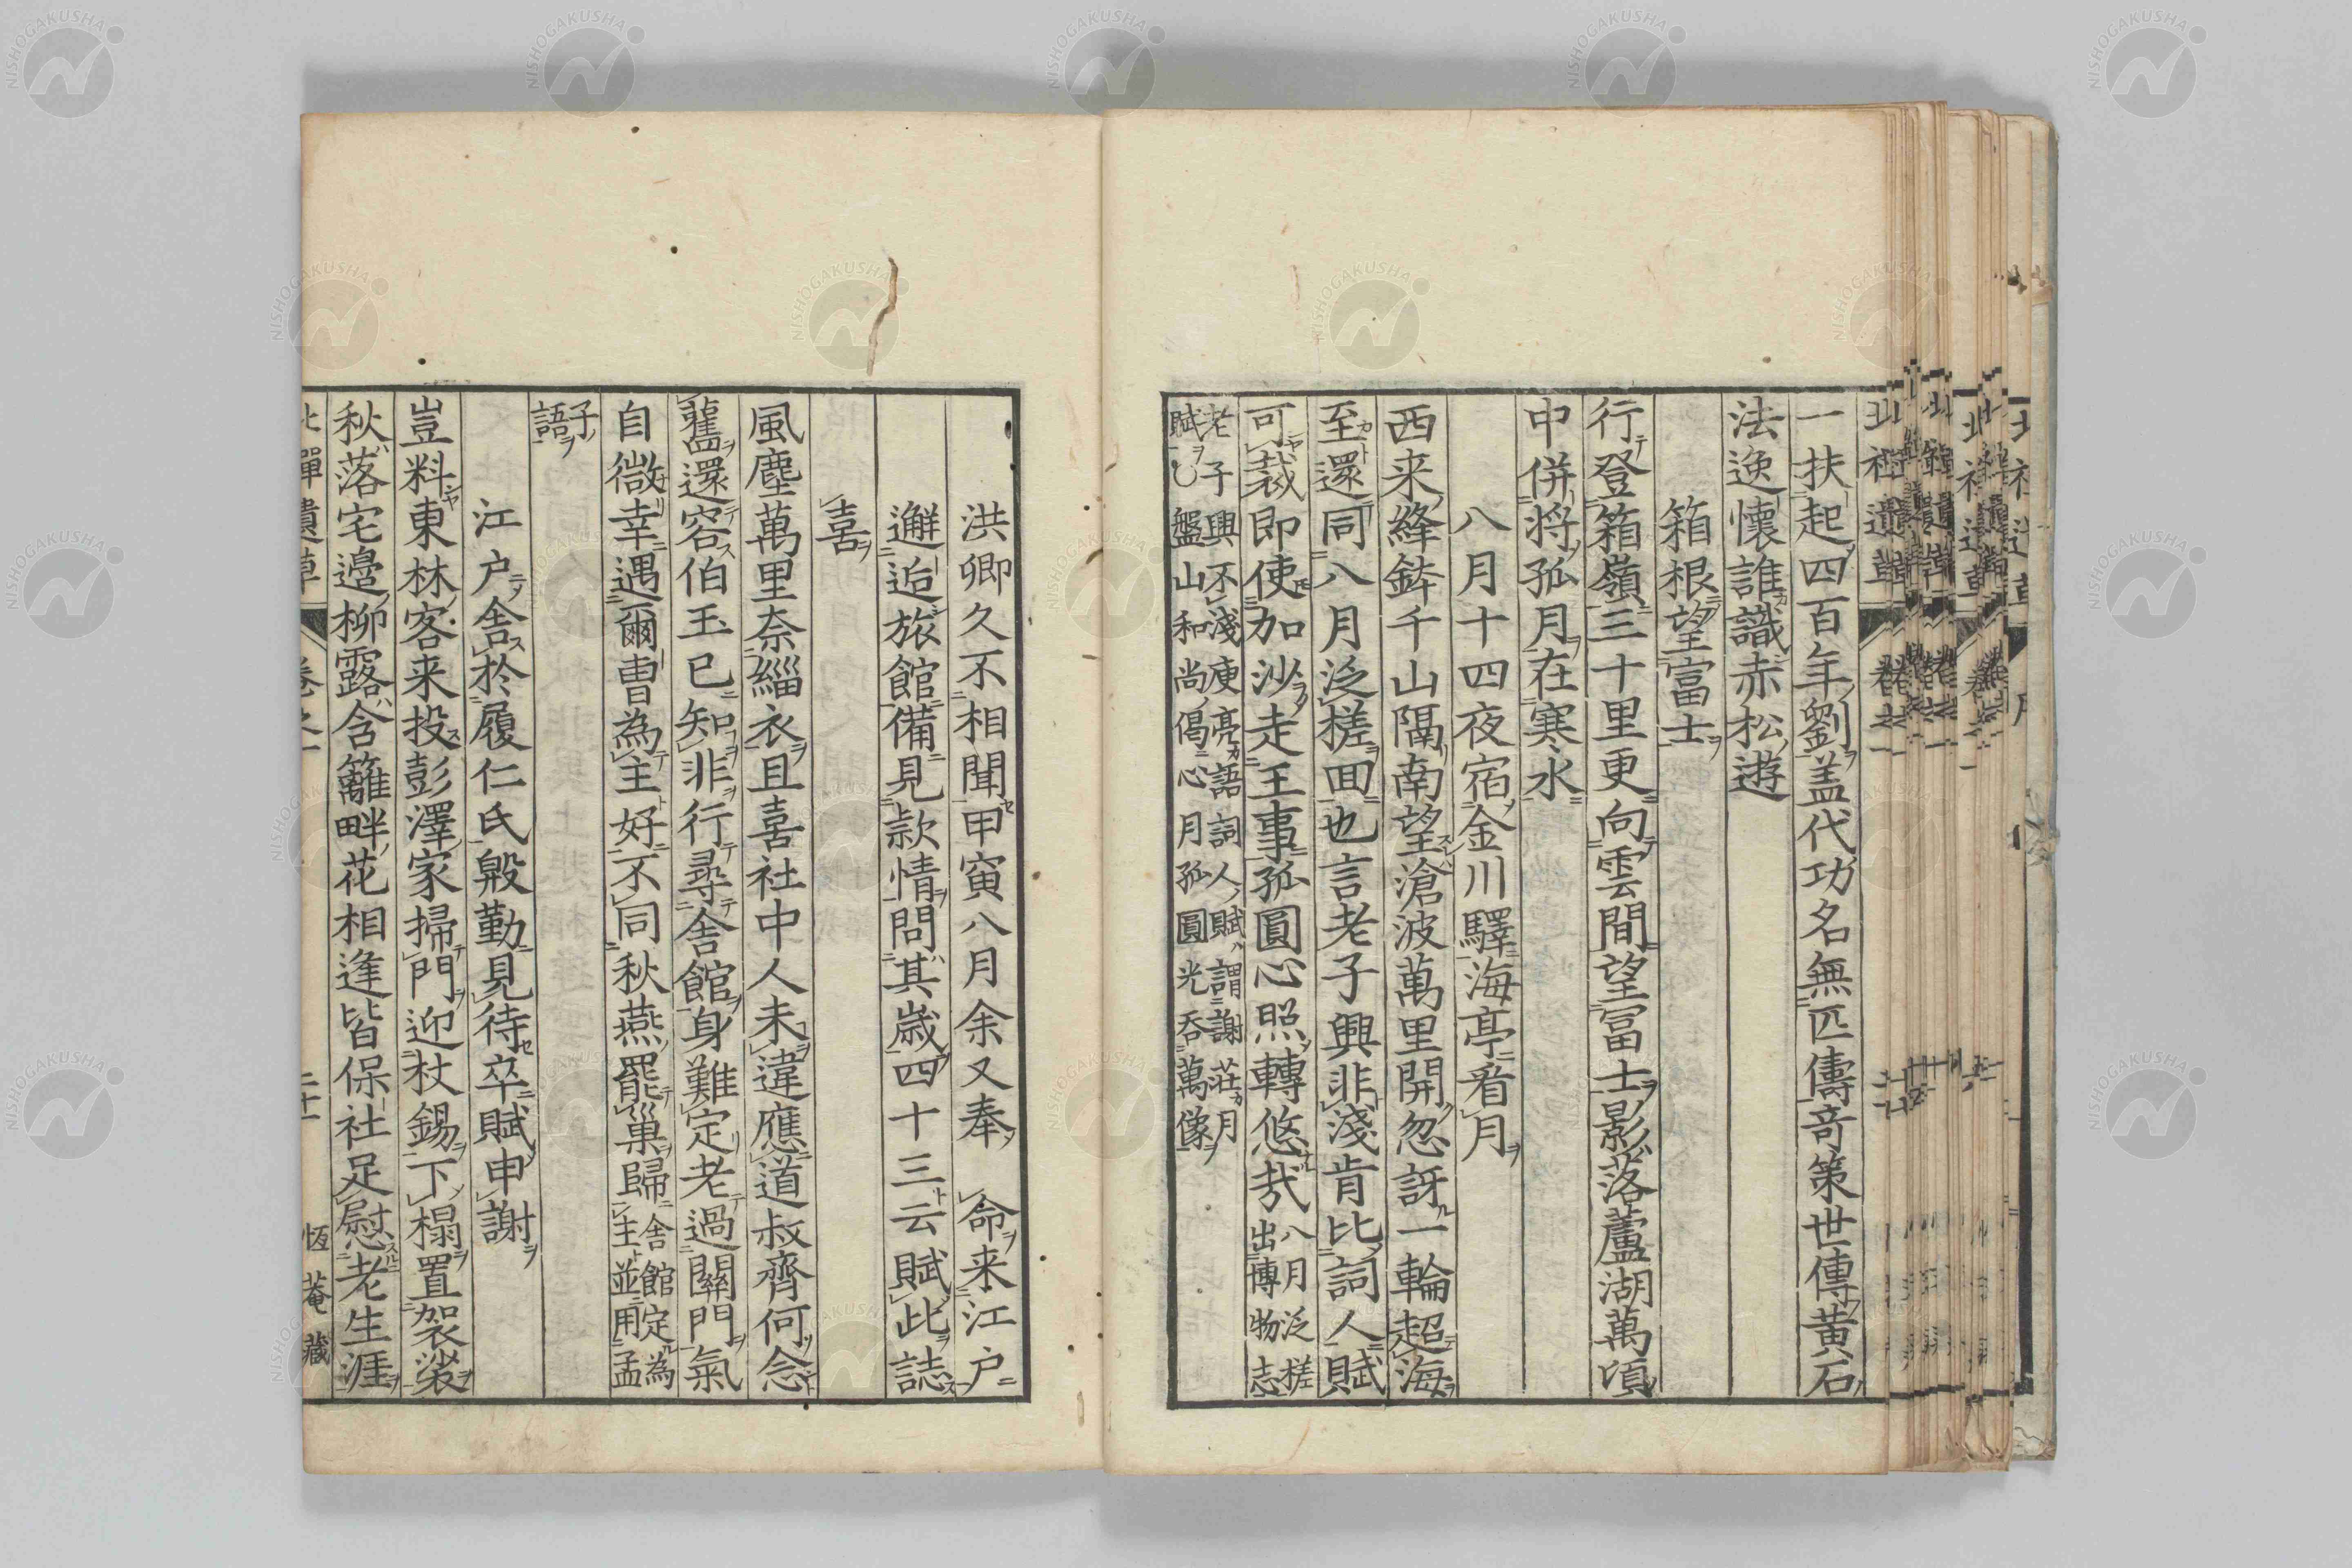 一扶起四百年劉盖代功名無匹儔竒策世傳黄石
法逸懷誰識赤松遊
箱根望富士
行登箱嶺三十里更向雲間望冨士影落蘆湖萬頃
中併将孤月在寒水
八月十四夜宿金川驛海亭看月
西来絳鉢千山隔南望滄波萬里開忽訝一輪超海
至還同八月泛槎回也言老子興非淺肯比詞人賦
可裁即使加沙走王事孤圓心照轉悠哉
八月泛槎
出博物志
老子興不淺庾亮語詞人賦謂謝莊月
賦乚盤山和尚偈心月孤圓光呑萬像
洪卿久不相聞甲寅八月余又奉 命来江户
邂逅旅館備見款情問其歳四十三云賦此誌
喜
風塵萬里奈緇衣且喜社中人未違應道叔齊何念
舊還容伯玉已知非行尋舎館身難定老過關門氣
自微幸遇爾曹為主好不同秋燕罷巢歸
舎館定為
主並用孟
子
語
江户舎於履仁氏毇勤見待卒賦申謝
豈料東林客来投彭澤家掃門迎杖錫下榻置袈裟
秋落宅邉柳露含籬畔花相逢皆保社足慰老生涯
卷之一
二十二
恆菴藏